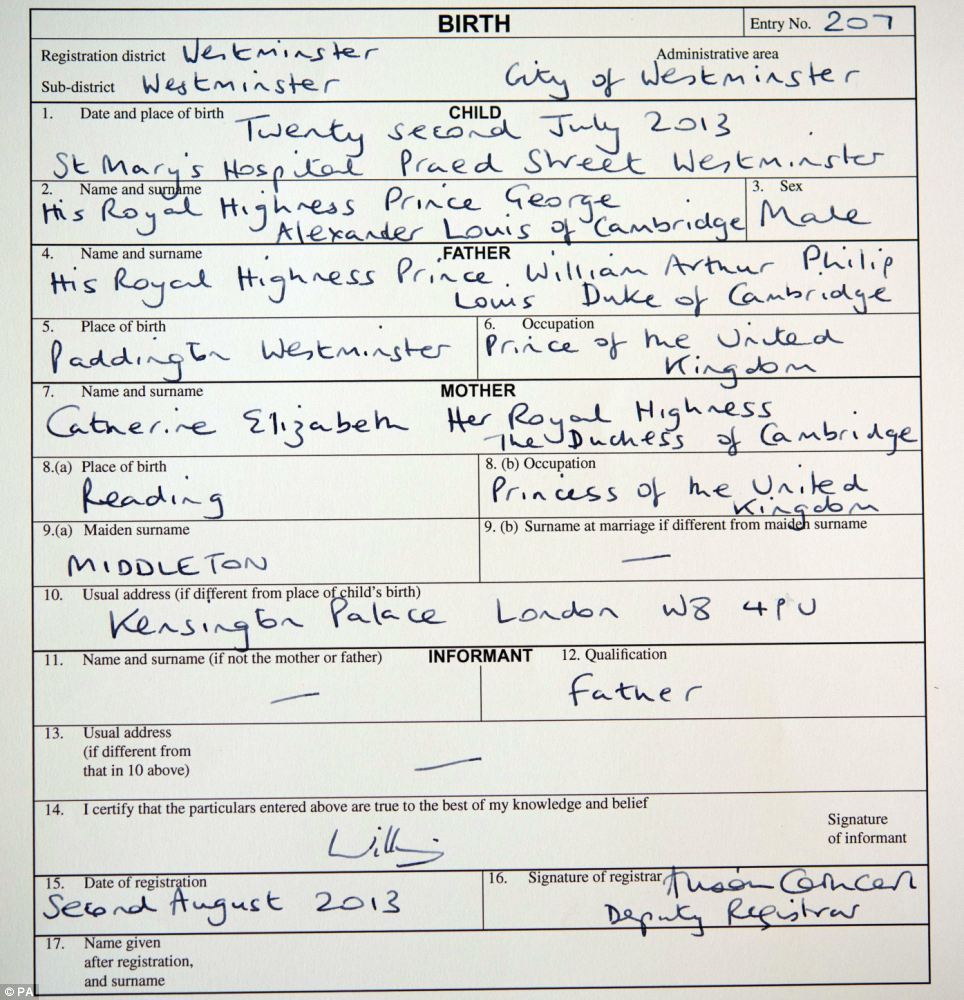 BIRTH Entry No. 207
Registration district Westminster Administrative area
Sub-district Westminster City of Westminster
1. Date and place of birth CHILD
Twenty second July 2013
St Mary's Hospital Praed Street Westminster
2. Name and surname 3. Sex
His Royal Highness Prince George Male
Alexander Louis of Cambridge
4. Name and surname FATHER
His Royal Highness Prince William Arthur Philip
Louis Duke of Cambridge
5. Place of birth 6. Occupation
Paddington Westminster Prince of the United
Kingdom
7. Name and surname MOTHER
Catherine Elizabeth Her Royal Highness
The Duchess of Cambridge
8.(a) Place of birth 8. (b) Occupation
Reading Princess of the United
Kingdom
9.(a) Maiden surname 9. (b) Surname at marriage if different from maiden surname
MIDDLETON —
10. Usual address (if different from place of child's birth)
Kensington Palace London W8 4PU
11. Name and surname (if not the mother or father) INFORMANT 12. Qualification
— Father
13. Usual address
(if different from
that in 10 above) —
14. I certify that the particulars entered above are true to the best of my knowledge and belief
Signature
of informant
15. Date of registration 16. Signature of registrar
Second August 2013 Deputy Registrar
17. Name given
after registration,
and surname
© PA